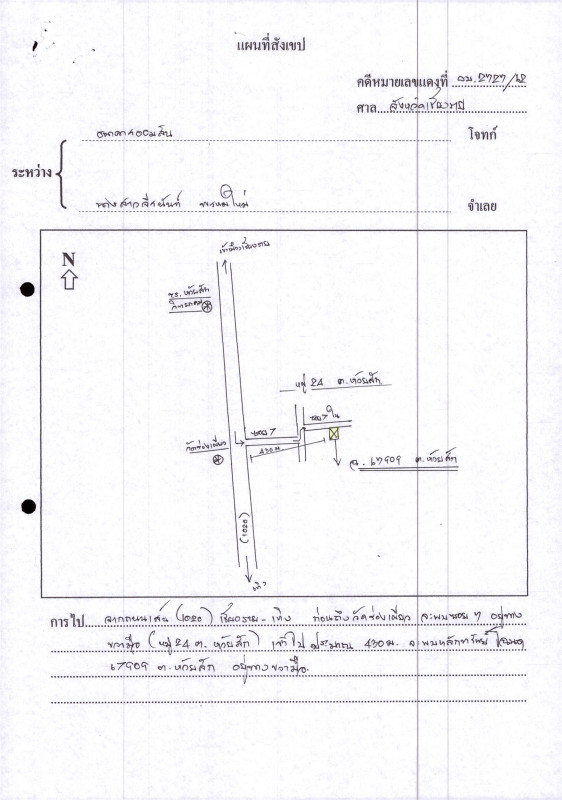 แผนที่สังเขป
คดีหมายเลขแดงที่ ผบ.2727/62
ศาล จังหวัดเชียงราย
ธนาคารออมสิน โจทก์
ระหว่าง
นางสาว จำเลย
N
เข้าเมืองเชียงราย
ต.ห้วยสัก
หมู่ 24 ต.ห้วยสัก
ซอย 7
ซอย 7 ใน
430 M
ฉ. 67909 ต.ห้วยสัก
(1020)
การไป จากถนนเส้น (1020) เชียงราย - เทิง ก่อนถึงวัด จะพบซอย 7 อยู่ทาง
ขวามือ (หมู่ 24 ต. ห้วยสัก) เข้าไปประมาณ 430 ม. จะพบหลักทรัพย์ โฉนด
67909 ต.ห้วยสัก อยู่ทางขวามือ.